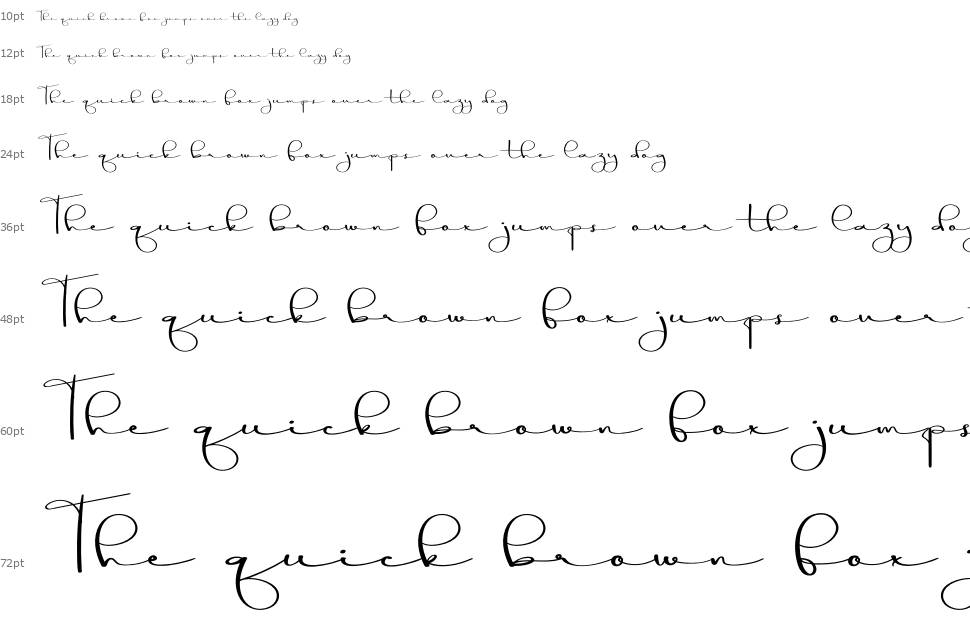 10pt The quick brown fox jumps over the lazy dog
12pt The quick brown fox jumps over the lazy dog
18pt The quick brown fox jumps over the lazy dog
24pt The quick brown fox jumps over the lazy dog
36pt The quick brown fox jumps over the lazy dog
48pt The quick brown fox jumps over
60pt The quick brown fox jumps
72pt The quick brown fox